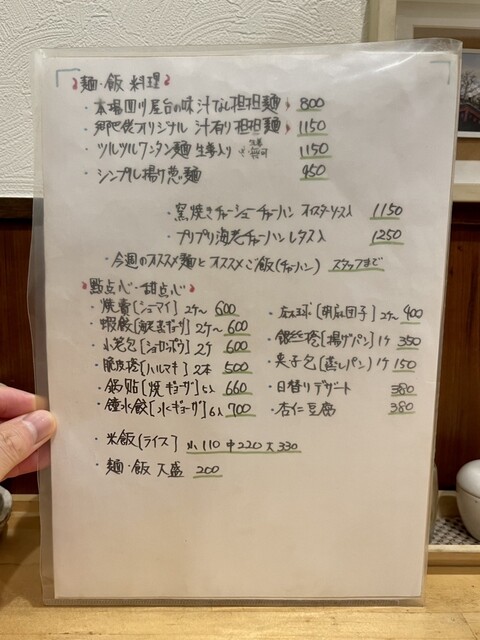 麺・飯 料理
・本場四川屋台の味 汁なし担担麺 800
・郷巴佬オリジナル 汁有り担担麺 1150
・ツルツルワンタン麺 生姜入り 1150
・シンプル揚げ葱麺 950
・窯焼きチャーシューチャーハン オイスターソース入 1150
・プリプリ海老チャーハン レタス入 1250
・今週のオススメ麺とオススメご飯(チャーハン) スタッフまで
點点心・甜点心
・焼賣[シューマイ] 2ケ〜 600
・蝦餃[海老蒸ギョーザ] 2ケ〜 600
・小笼包[ショーロンポウ] 2ケ 600
・脆皮捲[ハルマキ] 2本 500
・鍋貼[焼ギョーザ] 5入 660
・鐘水餃[水ギョーザ] 6入 700
・麻球[胡麻団子] 2ケ〜 400
・銀丝捲[揚げパン] 1ケ 350
・夹子包[蒸しパン] 1ケ 150
・日替りデザート 380
・杏仁豆腐 380
・米飯[ライス] 小110 中220 大330
・麺・飯 大盛 200